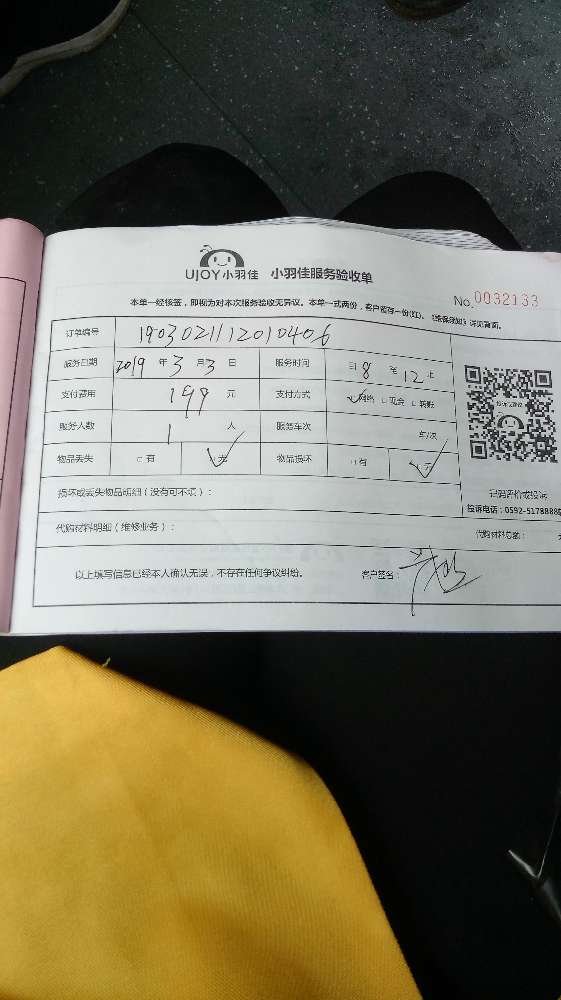 UJOY小羽佳 小羽佳服务验收单
本单一经核签，即视为对本次服务验收无异议。本单一式两份，客户留存一份(红)。《维保须知》详见背面。
No.0032133
订单编号 1903021112010406
服务日期 2019 年 3 月 3 日 服务时间 自 8 至 12 止
支付费用 199 元 支付方式 ☑网络 □现金 □转账
服务人数 1 人 服务车次 车/次
物品丢失 □有 ☑无 物品损坏 □有 ☑无
扫码评价或投诉
投诉电话：0592-5178888
损坏或丢失物品明细（没有可不填）：
代购材料明细（维修业务）： 代购材料总额：
以上填写信息已经本人确认无误，不存在任何争议纠纷。 客户签名：